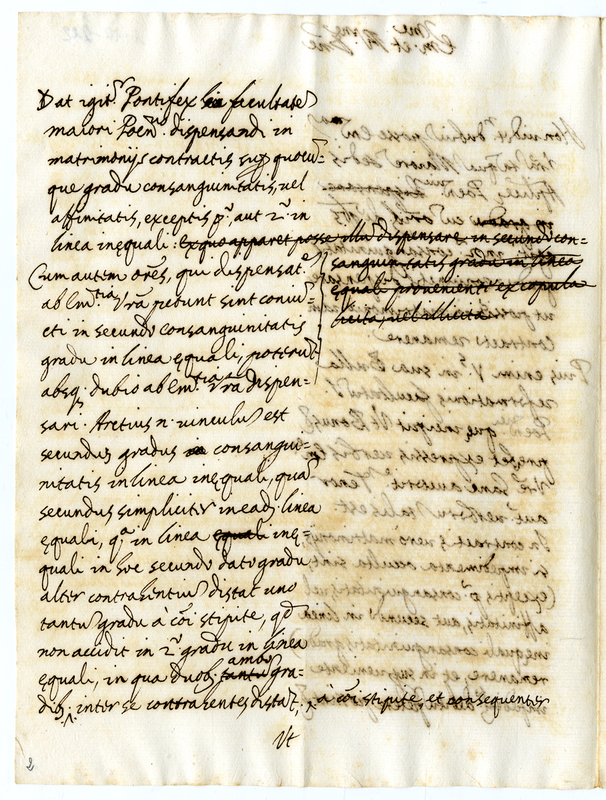 Dat igitr Pontifex facultate
maiori Poenrio dispensandi in
matrimonijs contractis sup quocu=
que gradu consanguinitatis, uel
affinitatis, exceptis po aut 2o in
linea inęquali: Ex quo apparet posse illu dispensare in secundo con=
sanguinitatis gradu in linea
ęquali provenienti ex copula
licita, uel illicita
Cum autem ores, qui dispensat.
ab Emtia Vra petunt sint coniu=
cti in secundo consanguinitatis
gradu in linea ęquali, poterut
absq. dubio ab Emtia Vra dispen=
sari. Arctius n. uinculu est
secundus gradus in consangui=
nitatis in linea inęquali, qua
secundus simplicitr in ead. linea
ęquali, qa in linea equali inę=
quali in hoc secundo dato gradu
alter contrahentiu distat uno
tantu gradu à coi stipite, qd
non accidit in 2o gradu in linea
ęquali, in qua duob. tantu ambo gra=
dib. inter se contrahentes distat, à coi stipite et consequenter
Vt
2